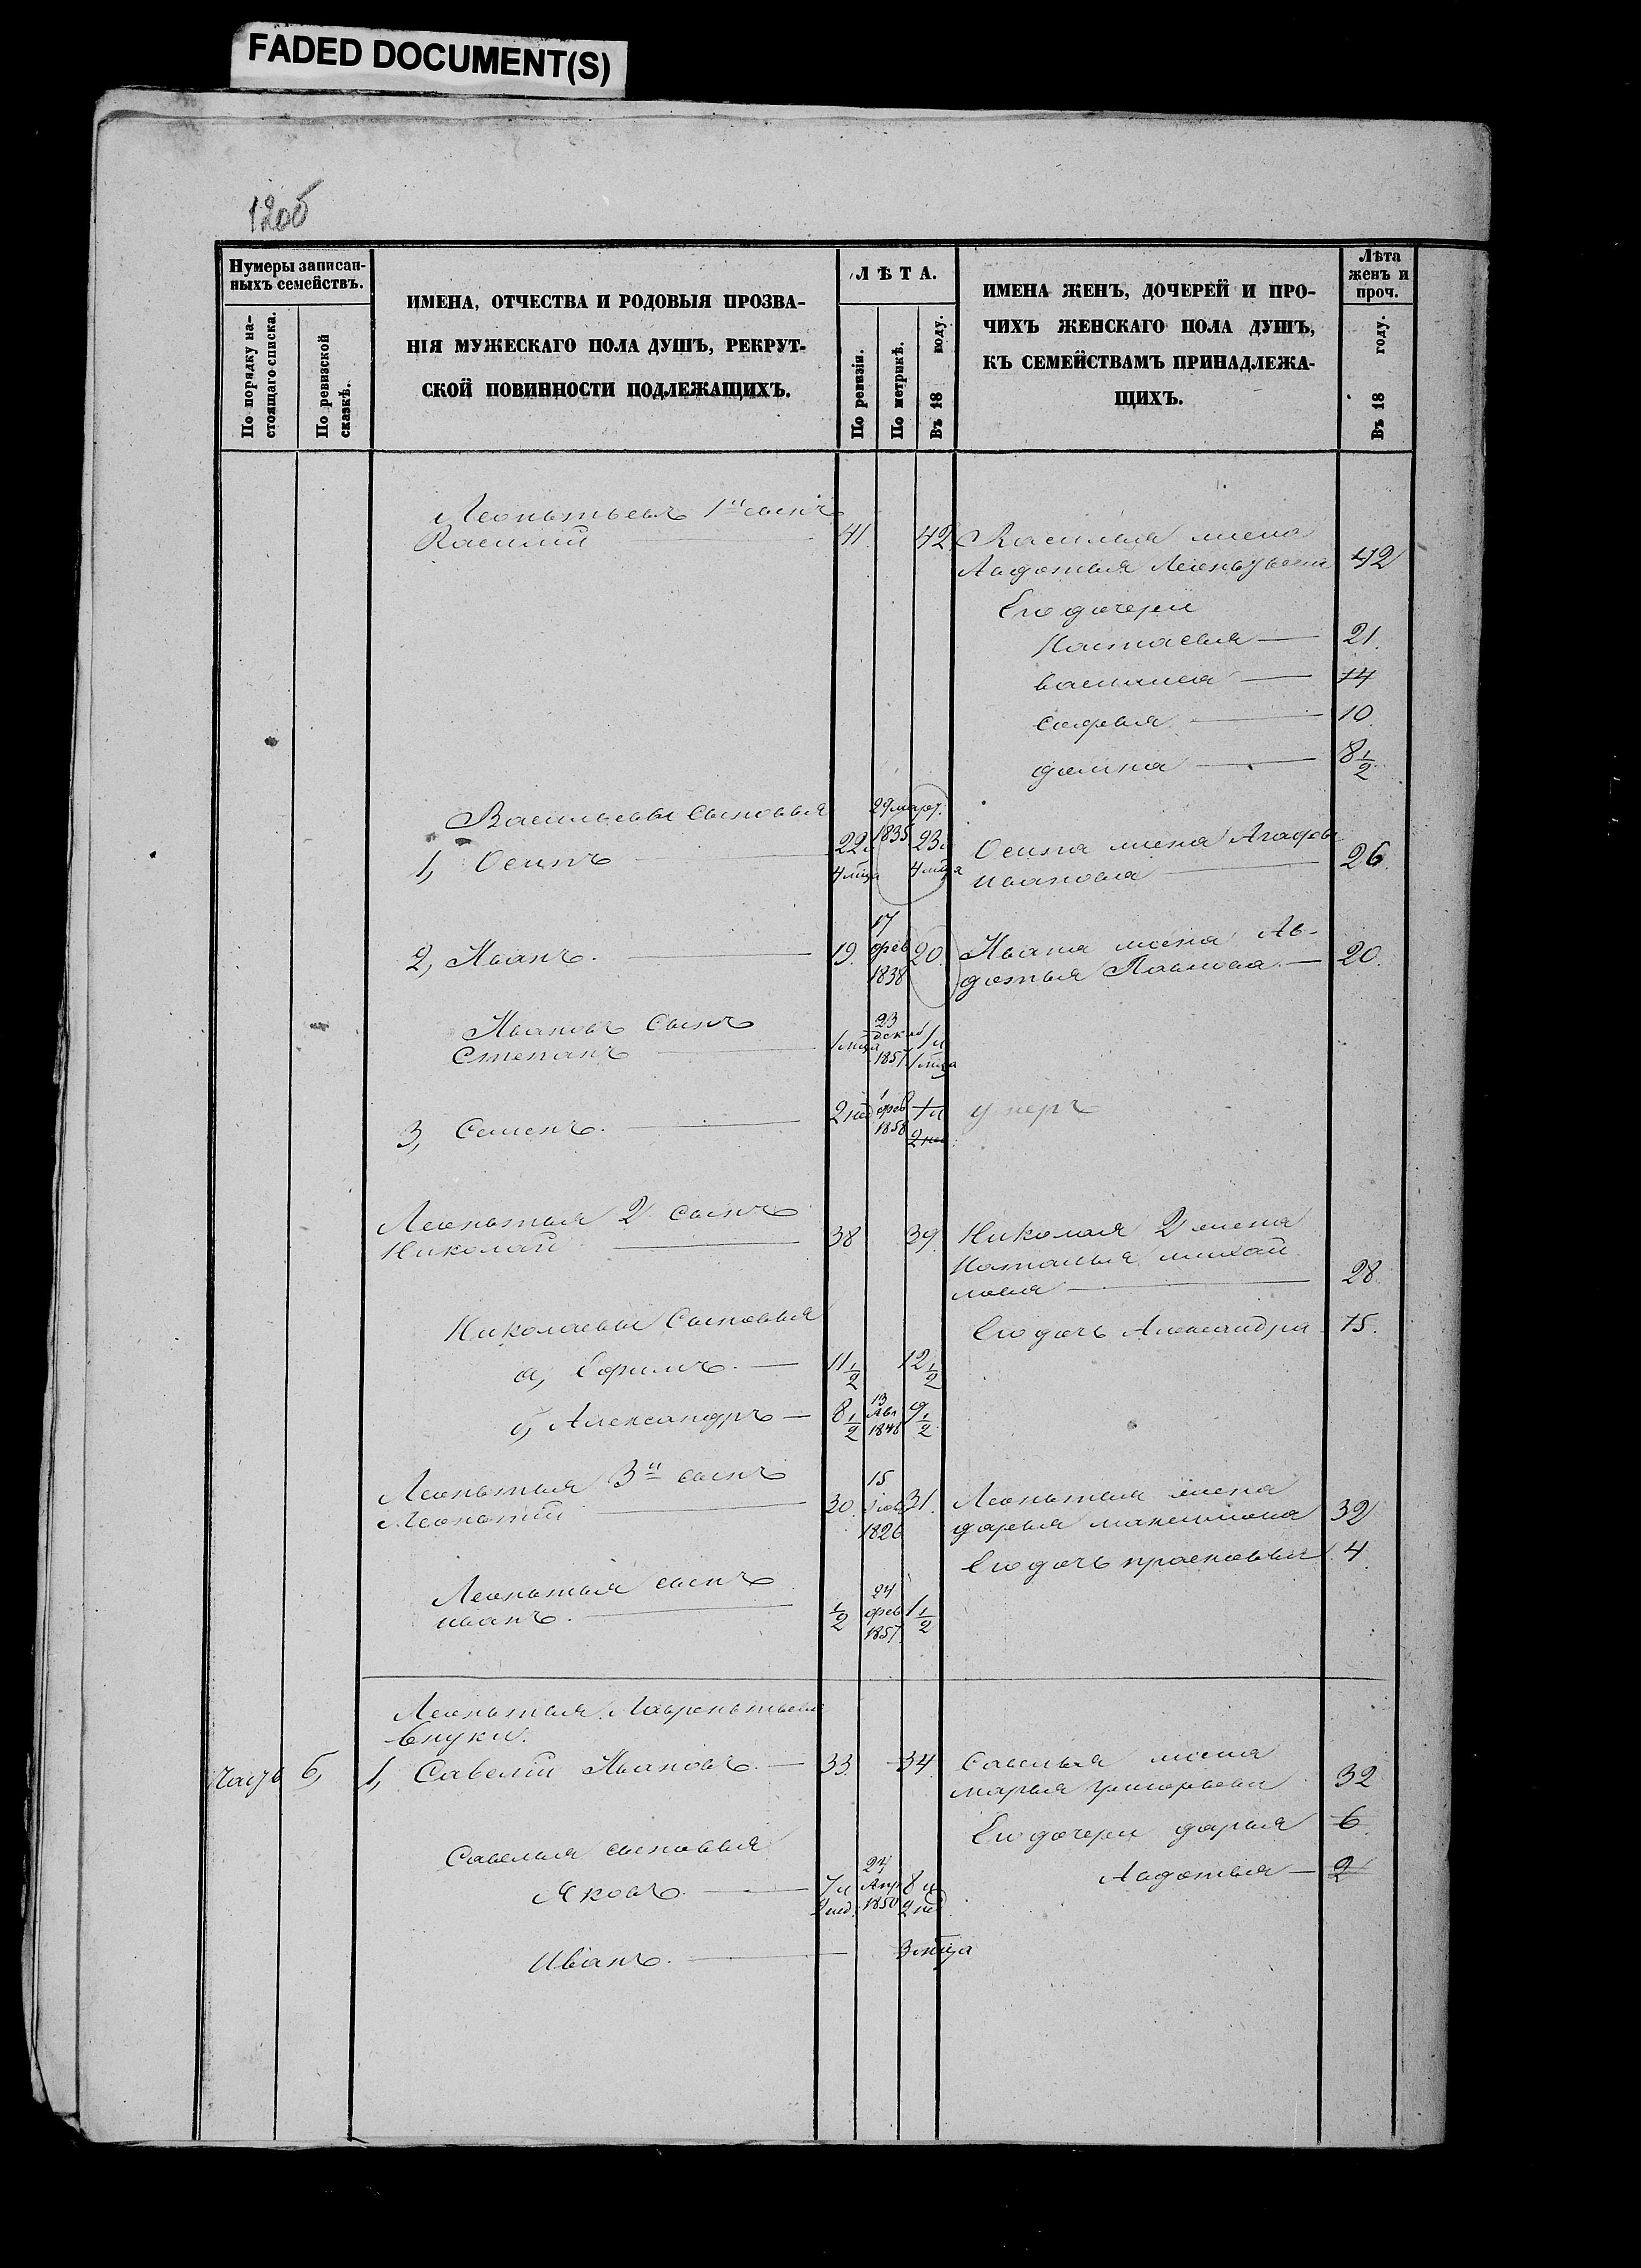 FADED DOCUMENT(S)
120б
Нумеры записан-
ныхъ семействъ.
По порядку на-
стоящаго списка.
По ревизской
сказкѣ.
ИМЕНА, ОТЧЕСТВА И РОДОВЫЯ ПРОЗВА-
НІЯ МУЖЕСКАГО ПОЛА ДУШЪ, РЕКРУТ-
СКОЙ ПОВИННОСТИ ПОДЛЕЖАЩИХЪ.
ЛѢТА.
По ревизіи.
По метрикѣ.
Въ 18 году.
ИМЕНА ЖЕНЪ, ДОЧЕРЕЙ И ПРО-
ЧИХЪ ЖЕНСКАГО ПОЛА ДУШЪ,
КЪ СЕМЕЙСТВАМЪ ПРИНАДЛЕЖА-
ЩИХЪ.
Лѣта
женъ и
проч.
Въ 18 году.
Леонтьевъ 1й сынъ
Василий 41 42 Василья жена
Авдотья Леонтьева 42
Его дочери
Настасья 21.
Василиса 14
Софья 10
Домна 8 1/2
Васильевы Сыновья 29 март.
1, Осипъ 22л 1835 23л Осипа жена Агафья
4 мѣца 4 мѣца Ивановна 26.
17
2, Иванъ. 19. фев 20. Ивана жена Ав-
1838 дотья Павлова 20.
Ивановъ Сынъ 23
Степанъ 1 мѣца дек 1 л
1857 1 мѣца
1
3, Семенъ. 2 нед фев 1 л умеръ
1858 2 нед
Леонтья 2 Сынъ
Николай 38 39. Николая 2 жена
Наталья Михай
лова 28.
Николаевы Сыновья Его дочь Александра 15.
а, Ефимъ. 11 1/2 12 1/2
13
б, Александръ 8 1/2 Авг 9 1/2
1848
Леонтья 3й сынъ 15
Леонтий 30. 31. Леонтья жена
1826 дарья максимова 32
Его дочь прасковья 4.
Леонтья сынъ 24
иванъ. 1/2 фев 1 1/2
1857.
Леонтья Лаврентьева
внуки.
6, 1, Савелий Ивановъ. 33. 34. Савелья жена
марья григорьева 32
Его дочери дарья 6.
Савелья сыновья 27 Авдотья 2
Яковъ. 7 л Апр 8 л
2 нед. 1850 2 нед
Иванъ. 3 мѣца